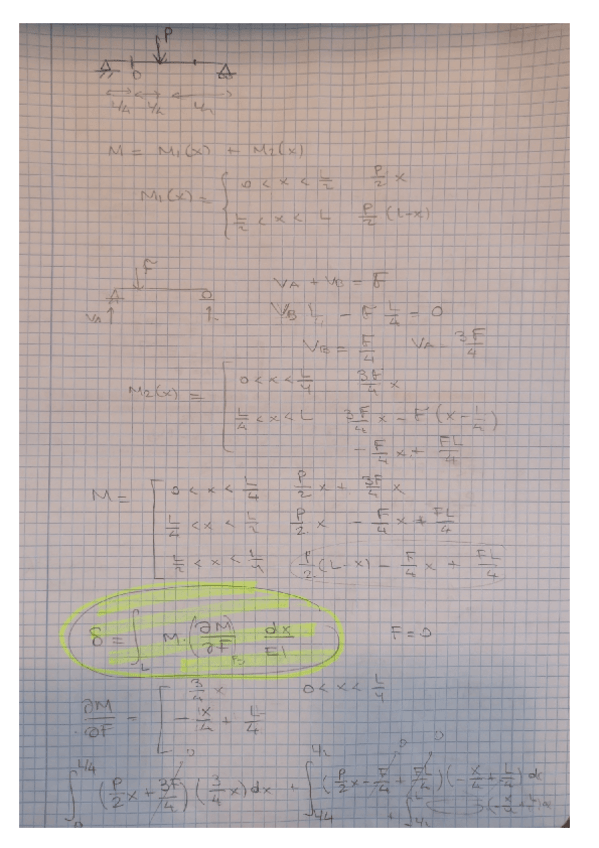 P
D
L/4 L/4 L/2
M = M₁(x) + M₂(x)
M₁(x) = { 0 < x < L/2 P/2 x
L/2 < x < L P/2 (L-x)
F
VA
VA + VB = F
VB L - F L/4 = 0
VB = F/4 VA = 3F/4
M₂(x) = { 0 < x < L/4 3F/4 x
L/4 < x < L 3F/4 x - F (x - L/4)
- F/4 x + FL/4
M = [ 0 < x < L/4 P/2 x + 3F/4 x
L/4 < x < L/2 P/2 x - F/4 x + FL/4
L/2 < x < L/4 P/2 (L-x) - F/4 x + FL/4
δ = ∫L M · (∂M/∂F) dx/EI F = 0
∂M/∂F = [ 3/4 x 0 < x < L/4
- x/4 + L/4
∫0^L/4 (P/2 x + 3F/4) (3/4 x) dx + ∫L/4^L/2 (P/2 x - F/4 + F/4) (- x/4 + L/4) dx